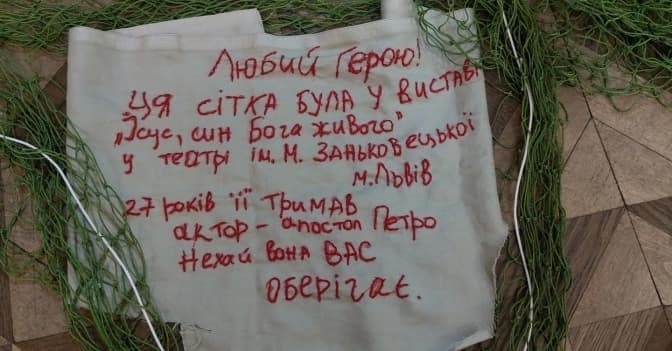 Любий Герою!
Ця сітка була у виставі
„Ісус, син Бога живого"
у театрі ім. М. Заньковецької
м. Львів
27 років її тримав
актор - апостол Петро
Нехай вона ВАС
оберігає.